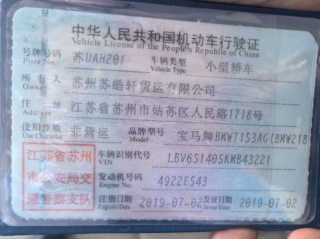 中华人民共和国机动车行驶证
Vehicle License of the People's Republic of China
号牌号码 苏UAH281 车辆类型 小型轿车
Plate No. Vehicle Type
所有人 苏州苏皓轩货运有限公司
Owner
住址 江苏省苏州市姑苏区人民路1718号
Address
使用性质 非营运 品牌型号 宝马牌BMW7153AG(BMW218
Use Character Model
江苏省苏州 车辆识别代号 LBV6S1405KMB43221
VIN
市公安局交 发动机号码 4922E543
Engine No.
通警察支队 注册日期 2019-07-02 发证日期 2019-07-02
Register Date Issue Date